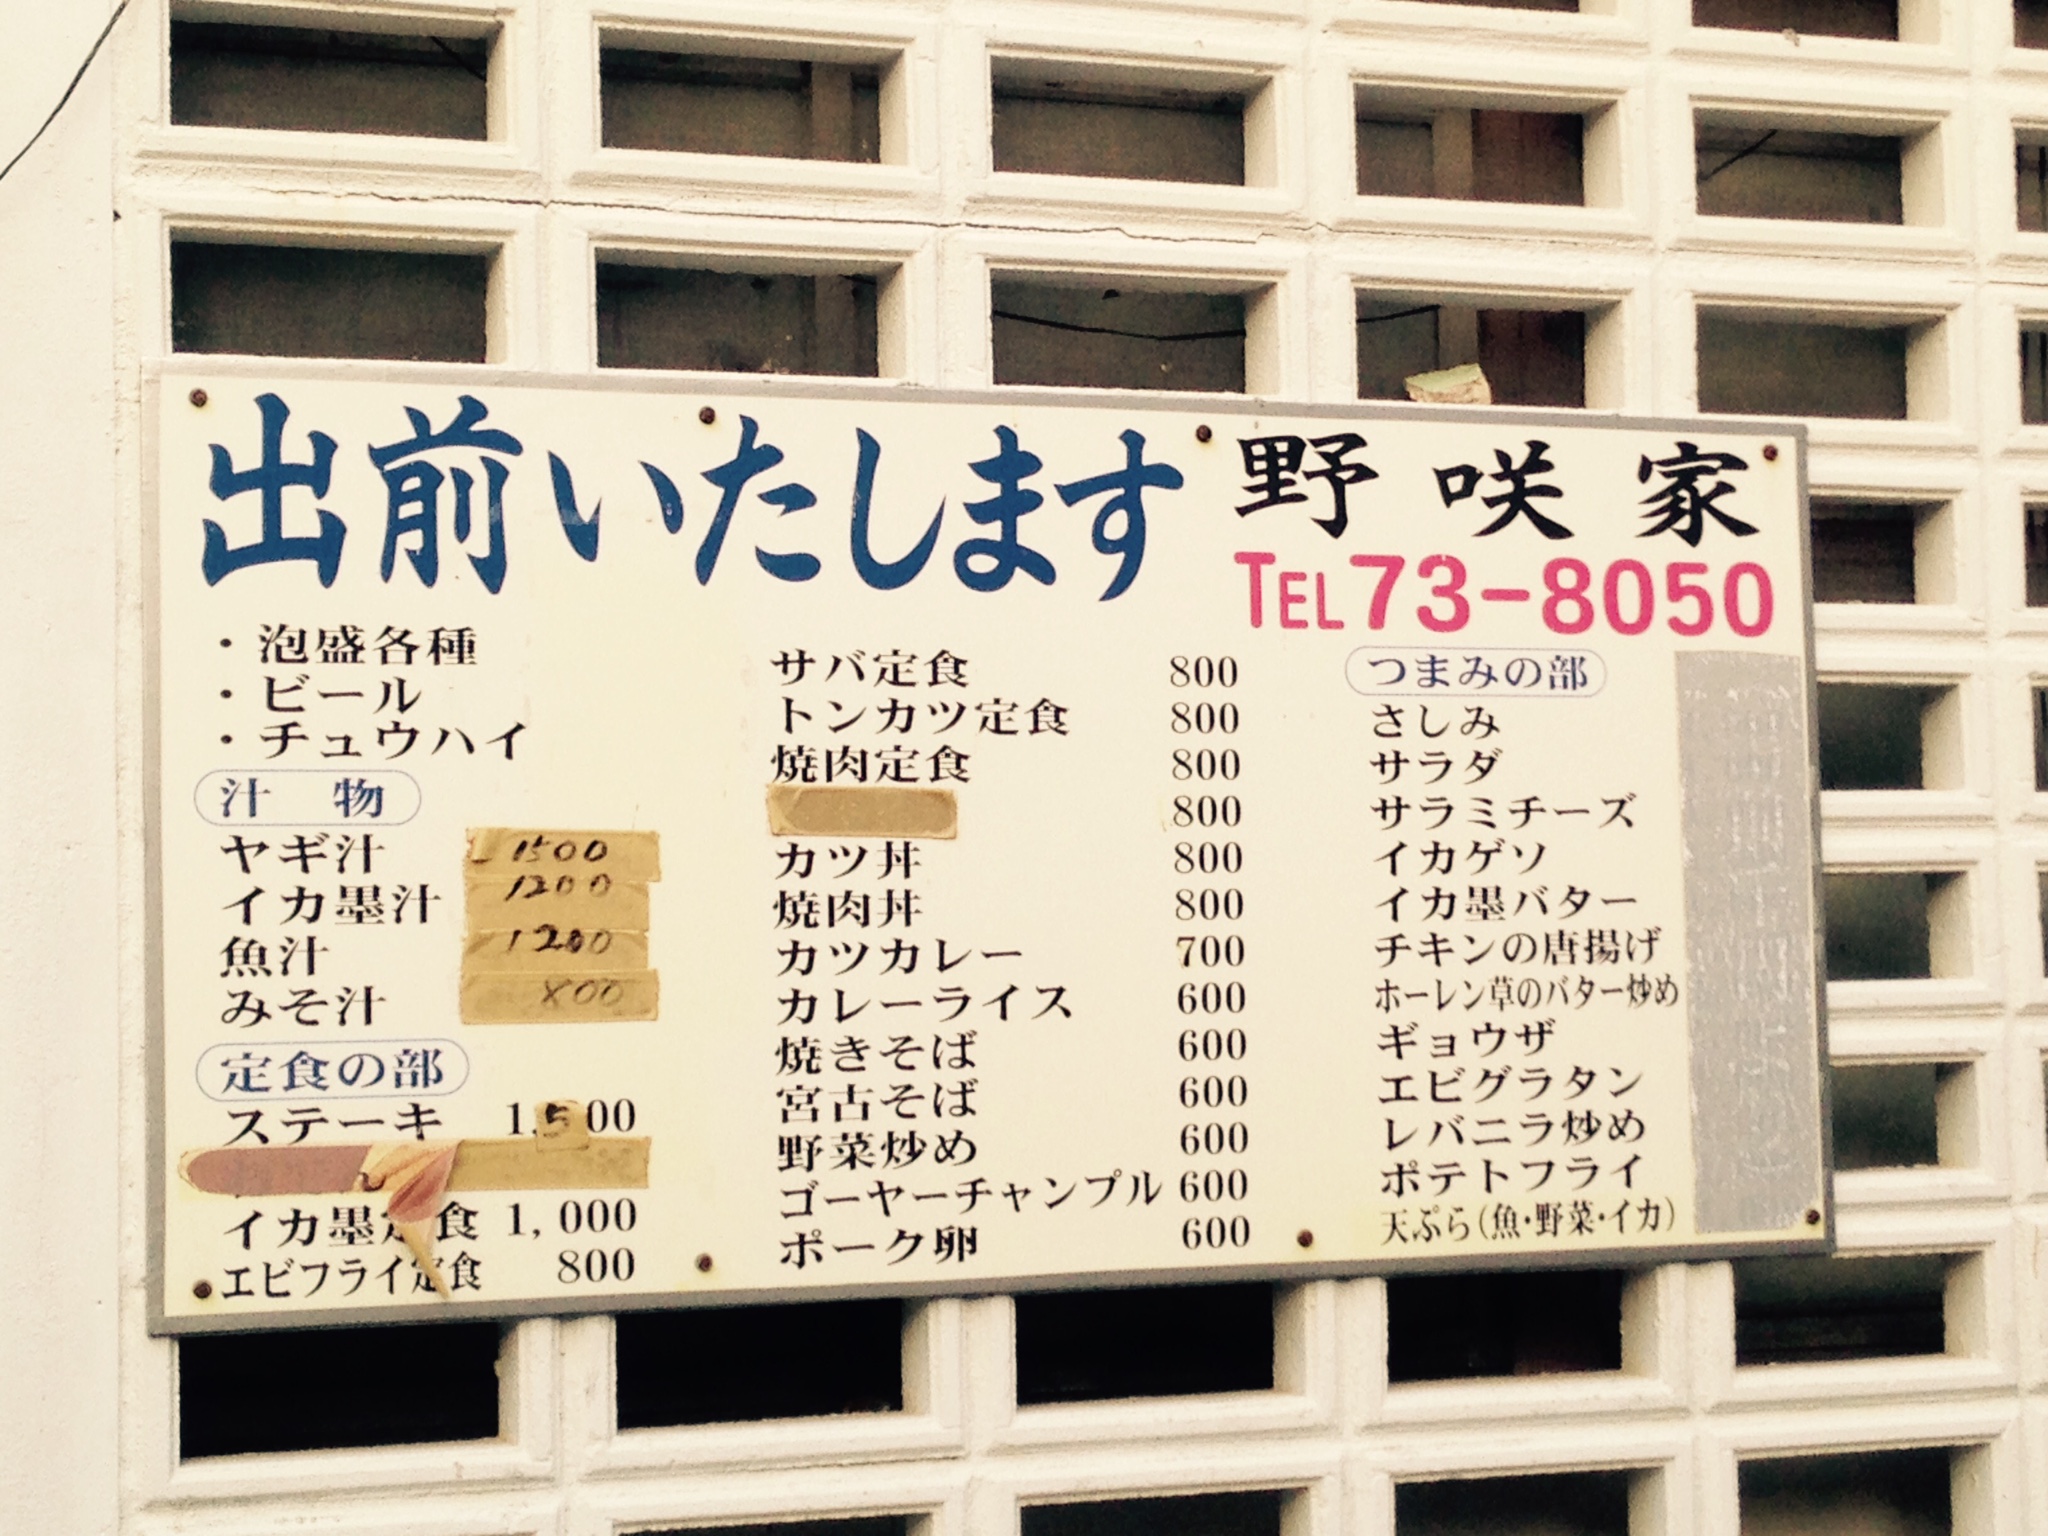 出前いたします
野咲家
TEL73-8050
・泡盛各種
・ビール
・チュウハイ
汁 物
ヤギ汁 1500
イカ墨汁 1200
魚汁 1200
みそ汁 800
定食の部
ステーキ 1,500
イカ墨定食 1,000
エビフライ定食 800
サバ定食 800
トンカツ定食 800
焼肉定食 800
800
カツ丼 800
焼肉丼 800
カツカレー 700
カレーライス 600
焼きそば 600
宮古そば 600
野菜炒め 600
ゴーヤーチャンプル 600
ポーク卵 600
つまみの部
さしみ
サラダ
サラミチーズ
イカゲソ
イカ墨バター
チキンの唐揚げ
ホーレン草のバター炒め
ギョウザ
エビグラタン
レバニラ炒め
ポテトフライ
天ぷら(魚・野菜・イカ)